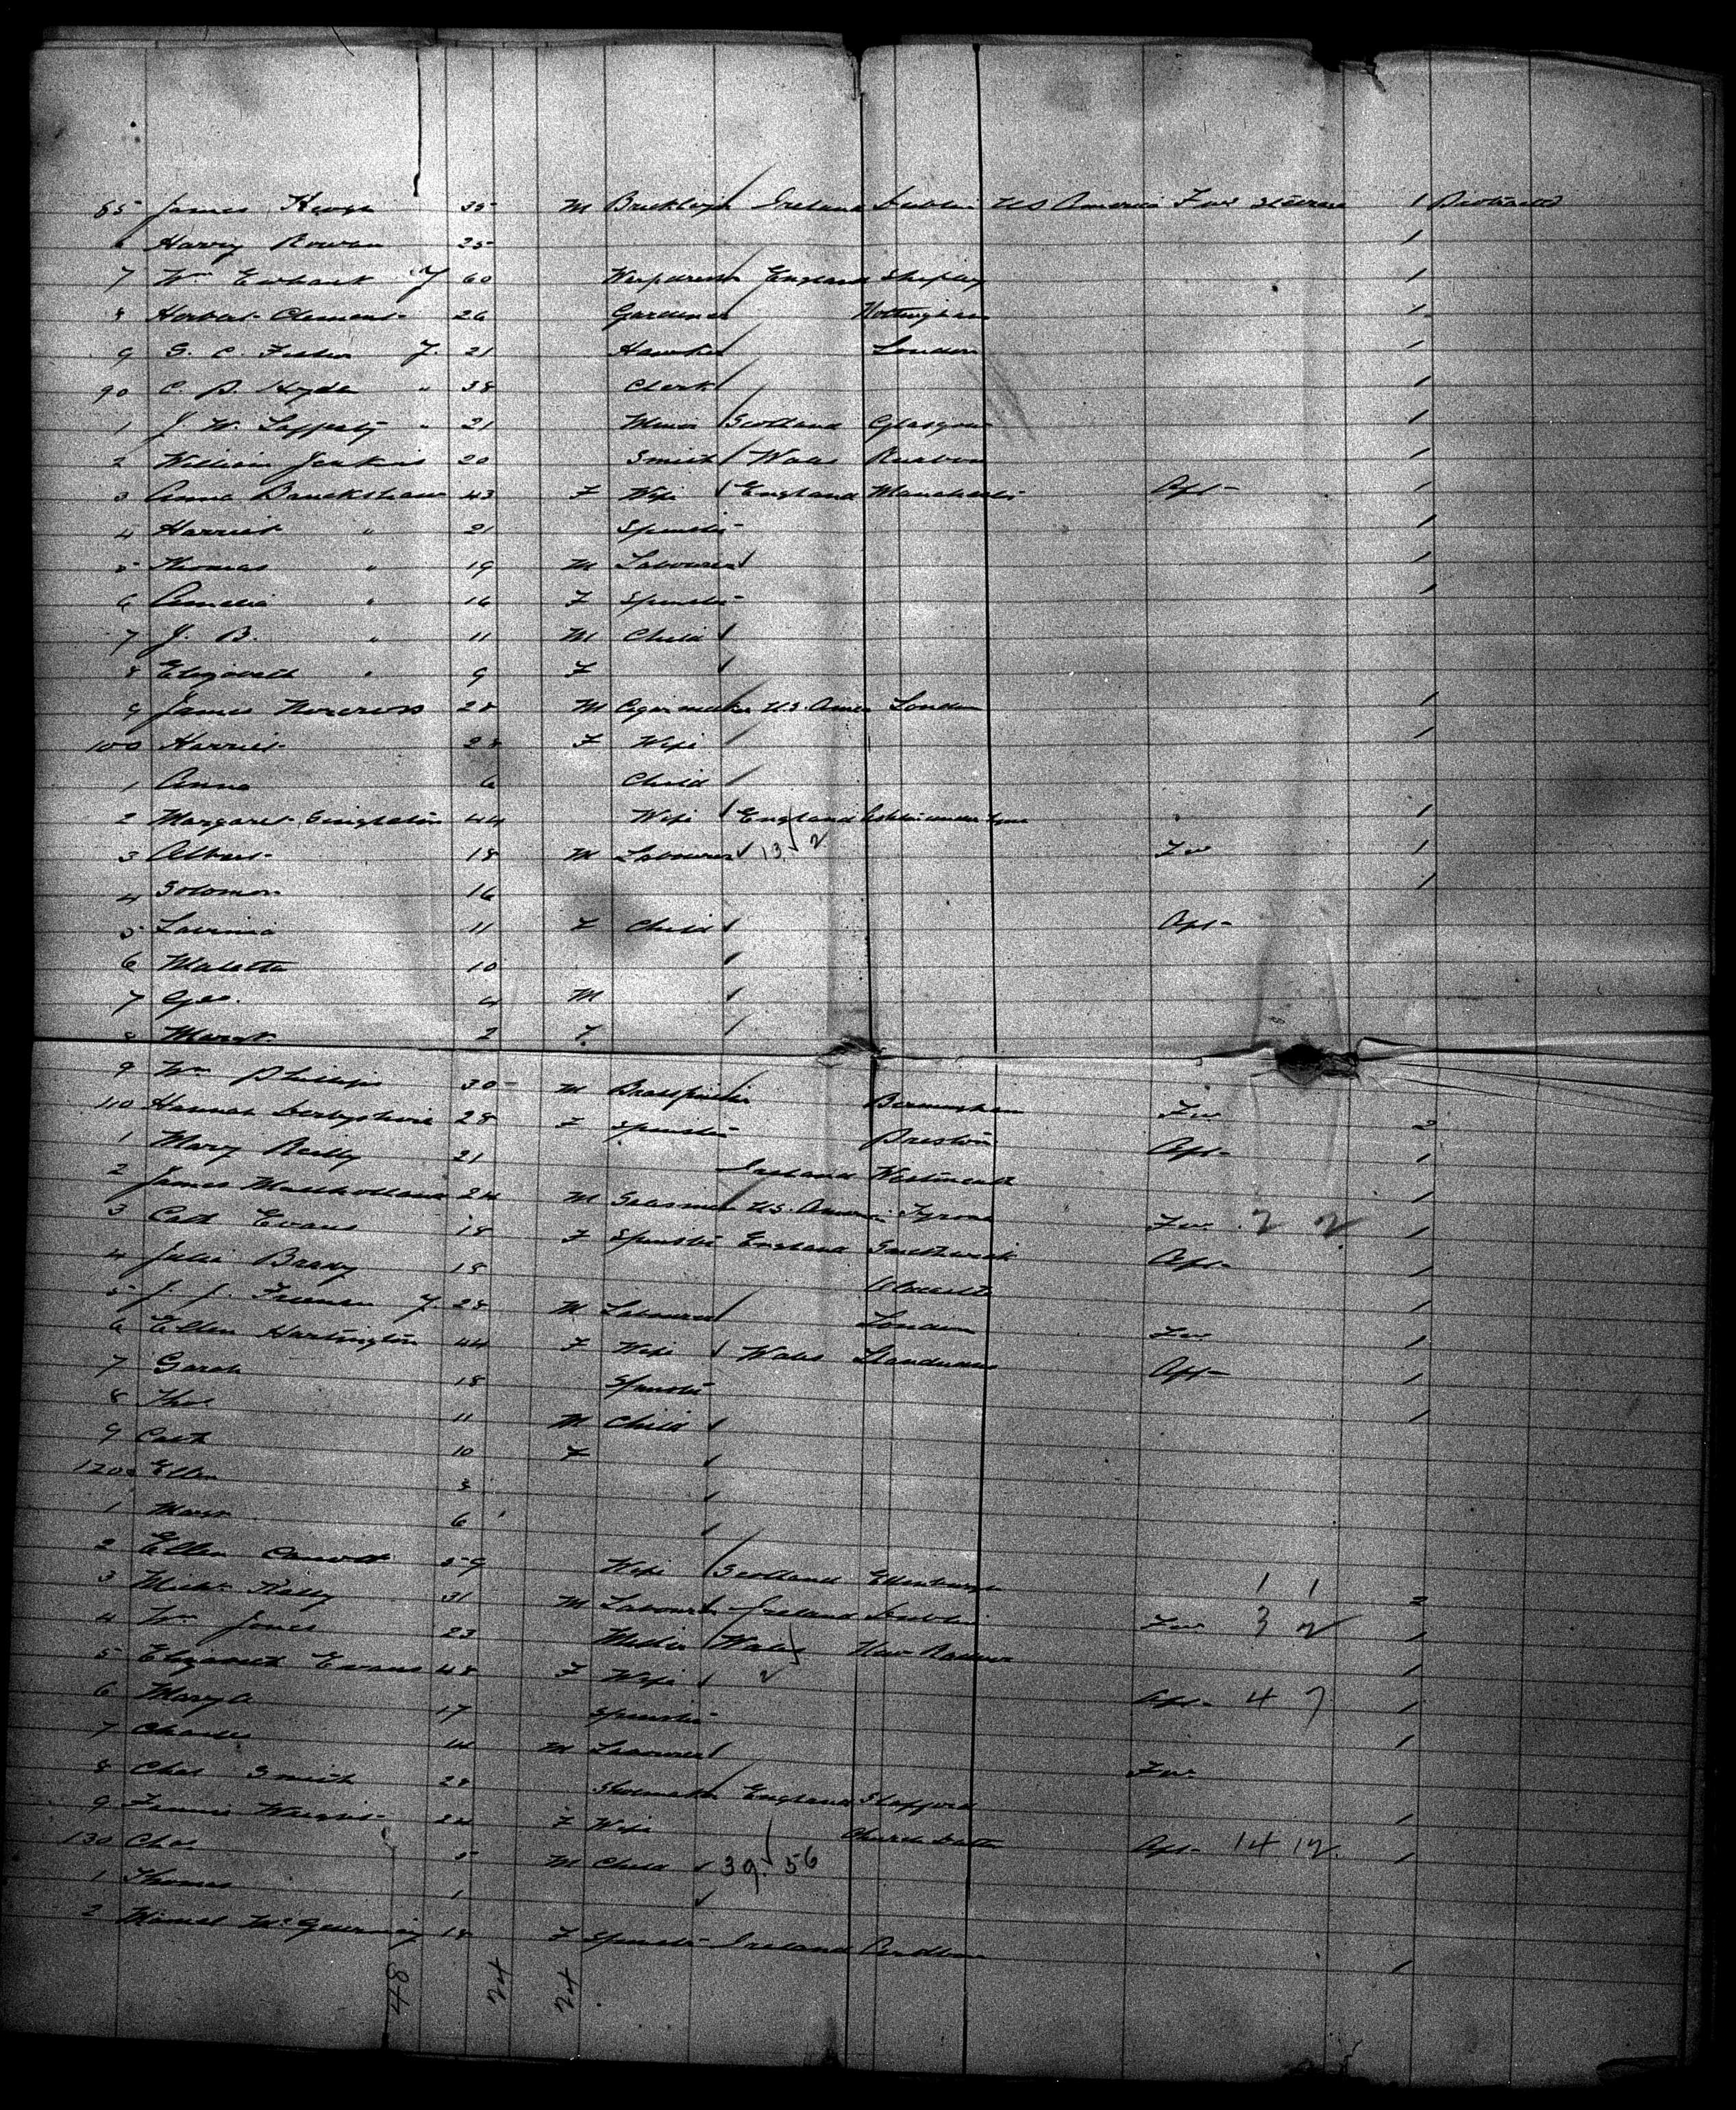 85 James Keogh 35 M Bricklayr Ireland Dublin US America Fwd Steerage 1 Protracted
6 Harry Rowan 25 1
7 Wm Ewbank 60 England Shipley 1
8 Herbert Clement 26 Gardener Nottingham 1
9 G. C. Fisher 21 London 1
90 C. P. Hyde " 38 Clerk 1
1 J. W. Lafferty " 21 Miner Scotland Glasgow 1
2 William Jenkins 20 Smith Wales Ruabon 1
3 Anna Banckshaw 43 F Wife England Manchester Aft 1
4 Harriet " 21 Spinster 1
5 Thomas " 19 M Labourer 1
6 Amelia " 16 F Spinster 1
7 J. B. " 11 M Child
8 Elizabeth " 9 F
9 James Norcross 28 M Cigar maker U.S. Amer London 1
100 Harriet 28 F Wife 1
1 Anna 6 Child
2 Margaret Singleton 44 Wife England Ashton under Lyne 1
3 Albert 18 M Labourer 13 2 Fwd 1
4 Solomon 16 1
5 Lavinia 11 F Child Aft
6 10
7 Geo. 4 M
8 Margt. 2 F
9 Wm Phillips 30 M Brassfinisher Birmingham Fwd 2
110 Hannah Derbyshire 28 F Spinster Preston Aft 1
1 Mary Reilly 21 Ireland Westmeath 1
2 James Mulholland 24 M Salesman U.S. Americ Tyrone Fwd 2 2 1
3 Cath Evans 18 F Spinster England Smethwick Aft 1
4 Julia Brady 18 1
5 J. J. Freeman 28 M Labourer London Fwd 1
6 Ellen Hartington 44 F Wife Wales Aft 1
7 Sarah 18 Spinster 1
8 Thos 11 M Child
9 Cath 10 F
120 Ellen 8
1 Margt 6
2 Ellen 59 Wife Scotland Edinburgh 1 1 2
3 Michl Kelly 31 M Labourer Ireland Dublin Fwd 3 2 1
4 Wm Jones 23 Wales New Radnor 1
5 Elizabeth Evans 48 F Wife Aft 4 7 1
6 Mary A 17 Spinster 1
7 Charles 14 M Labourer Fwd
8 Chas Smith 28 Shoemaker England Stafford 1
9 Fannie Wright 24 F Wife Aft 14 12 1
130 Chas. 5 M Child 39 56
1 Thomas 1
2 18 F Spinster Ireland 1
48 24 24